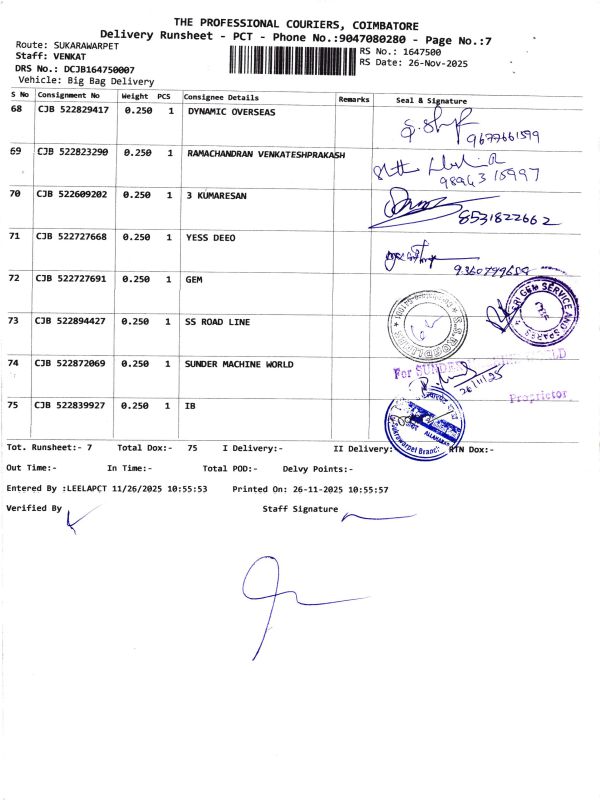 THE PROFESSIONAL COURIERS, COIMBATORE
Delivery Runsheet - PCT - Phone No.:9047080280 - Page No.:7
Route: SUKARAWARPET
Staff: VENKAT
DRS No.: DCJB164750007
Vehicle: Big Bag Delivery
RS No.: 1647500
RS Date: 26-Nov-2025
S No Consignment No Weight PCS Consignee Details Remarks Seal & Signature
68 CJB 522829417 0.250 1 DYNAMIC OVERSEAS
9677661599
69 CJB 522823290 0.250 1 RAMACHANDRAN VENKATESHPRAKASH
98943 15997
70 CJB 522609202 0.250 1 3 KUMARESAN
8531822662
71 CJB 522727668 0.250 1 YESS DEEO
9360799654
72 CJB 522727691 0.250 1 GEM
SRI GEM SERVICE AND SPARES
73 CJB 522894427 0.250 1 SS ROAD LINE
74 CJB 522872069 0.250 1 SUNDER MACHINE WORLD
For SUNDER
26/11/25
Proprietor
75 CJB 522839927 0.250 1 IB
ALLAHABAD
Sukrawarpet Branch
Tot. Runsheet:- 7 Total Dox:- 75 I Delivery:- II Delivery: RTN Dox:-
Out Time:- In Time:- Total POD:- Delvy Points:-
Entered By :LEELAPCT 11/26/2025 10:55:53 Printed On: 26-11-2025 10:55:57
Verified By Staff Signature